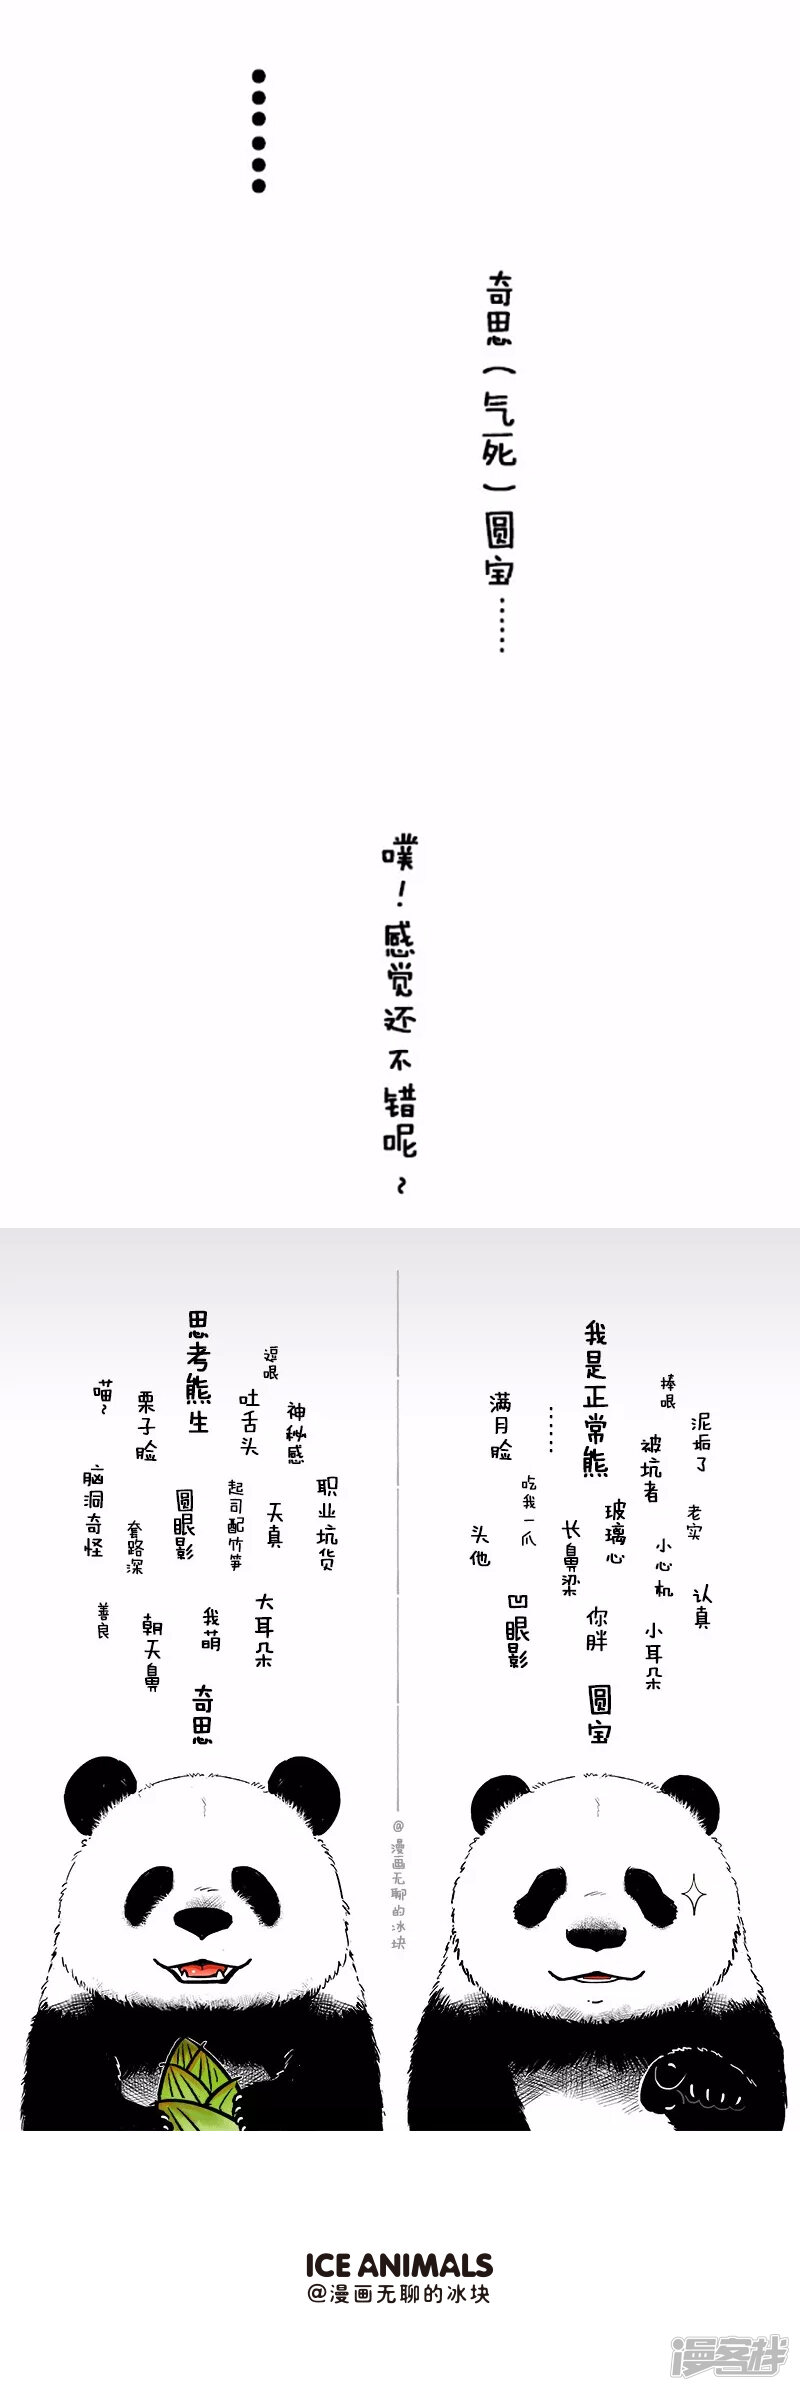 ……
奇思（气死）圆宝……
噗！感觉还不错呢~
思考熊生
逗哏
喵~
栗子脸
吐舌头
神秘感
脑洞奇怪
套路深
圆眼影
起司配竹笋
天真
职业坑货
善良
朝天鼻
我萌
大耳朵
奇思
我是正常熊
捧哏
满月脸
……
被坑者
泥垢了
头他
吃我一爪
长鼻梁
玻璃心
小心机
老实
凹眼影
你胖
小耳朵
认真
圆宝
@漫画无聊的冰块
ICE ANIMALS
@漫画无聊的冰块
漫客栈